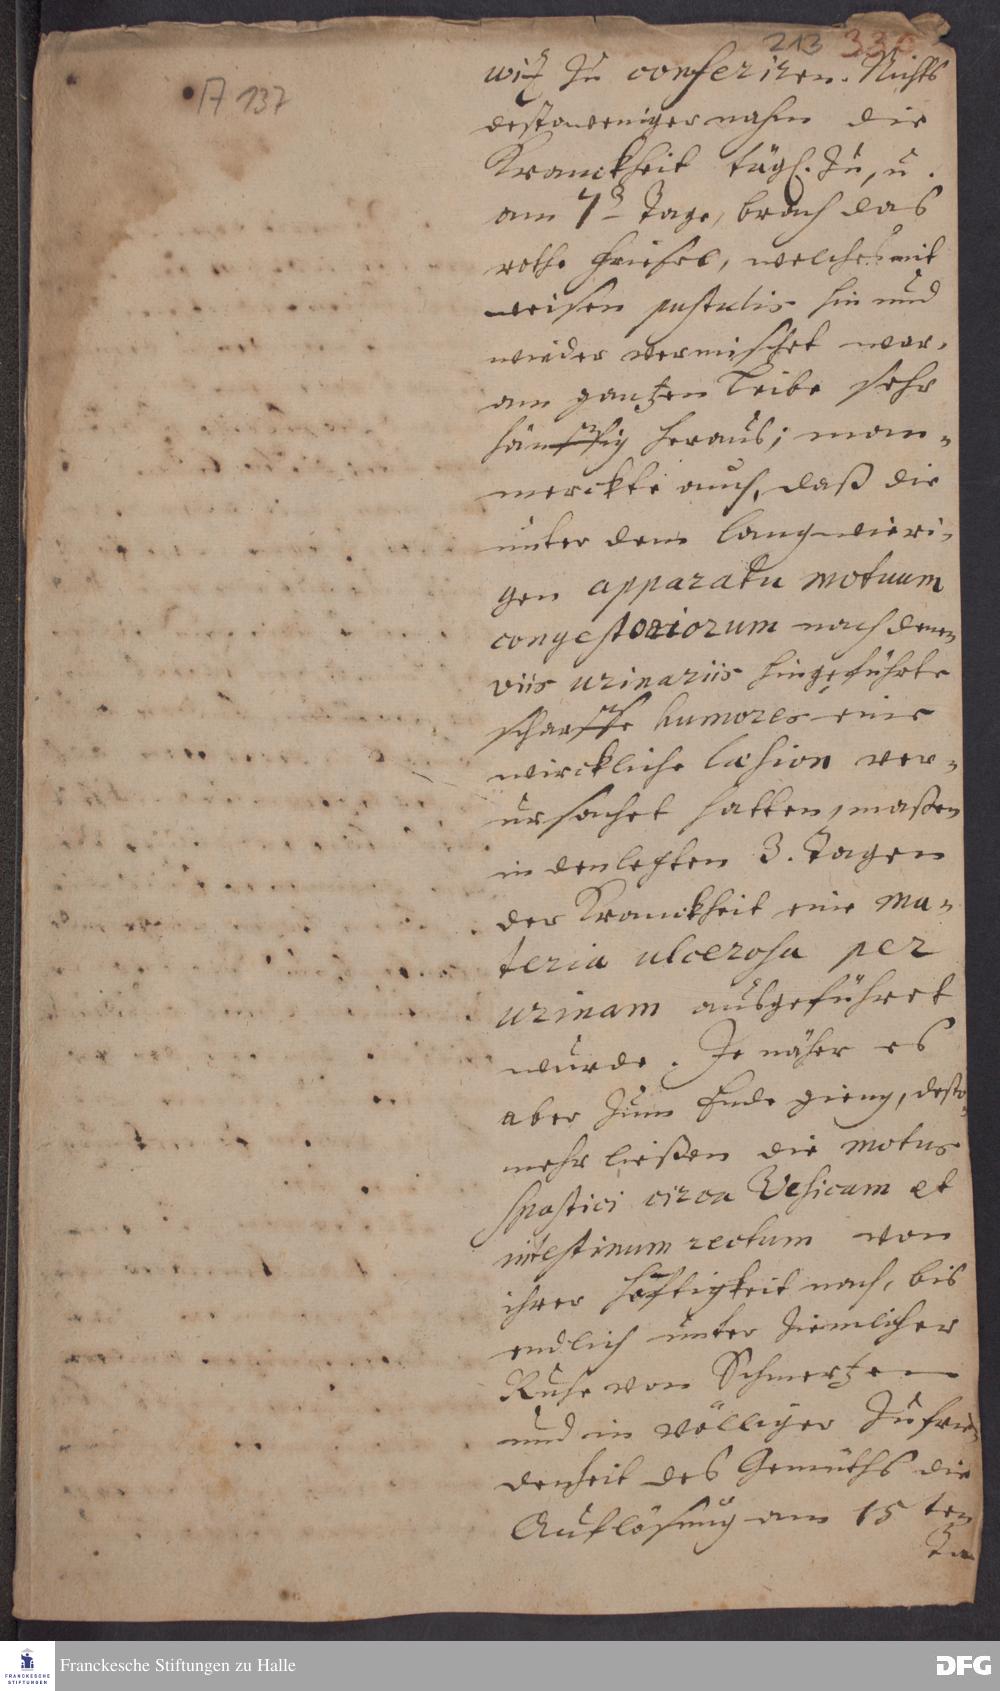 213 330
A 137
wiß zu conferiren. Nichts
destoweniger nahm die
Kranckheit tägl. zu, u.
am 7 Tage, brach das
rothe Friesel, welches mit
weisen pustulis hin und
wieder vermischet war,
am gantzen Leibe sehr
häuffig heraus; man
merckte auch, daß die
unter dem langwieri-
gen apparatu motuum
congestoriorum nach denen
viis urinariis hingeführte
scharffe humores eine
wirckliche læsion ver-
ursachet hatten, maßen
in den letzten 3. Tagen
der Kranckheit eine ma-
teria ulcerosa per
urinam ausgeführet
wurde. Je näher es
aber zum Ende gieng, desto
mehr ließen die motus
spastici circa Vesicam et
intestinum rectum von
ihrer Häftigkeit nach, bis
endlich unter ziemlicher
Ruhe von Schmertzen
und in völliger Zufrie-
denheit des Gemüths die
Auflösung am 15 ten
Ta
Franckesche Stiftungen zu Halle
FRANCKESCHE
STIFTUNGEN
DFG